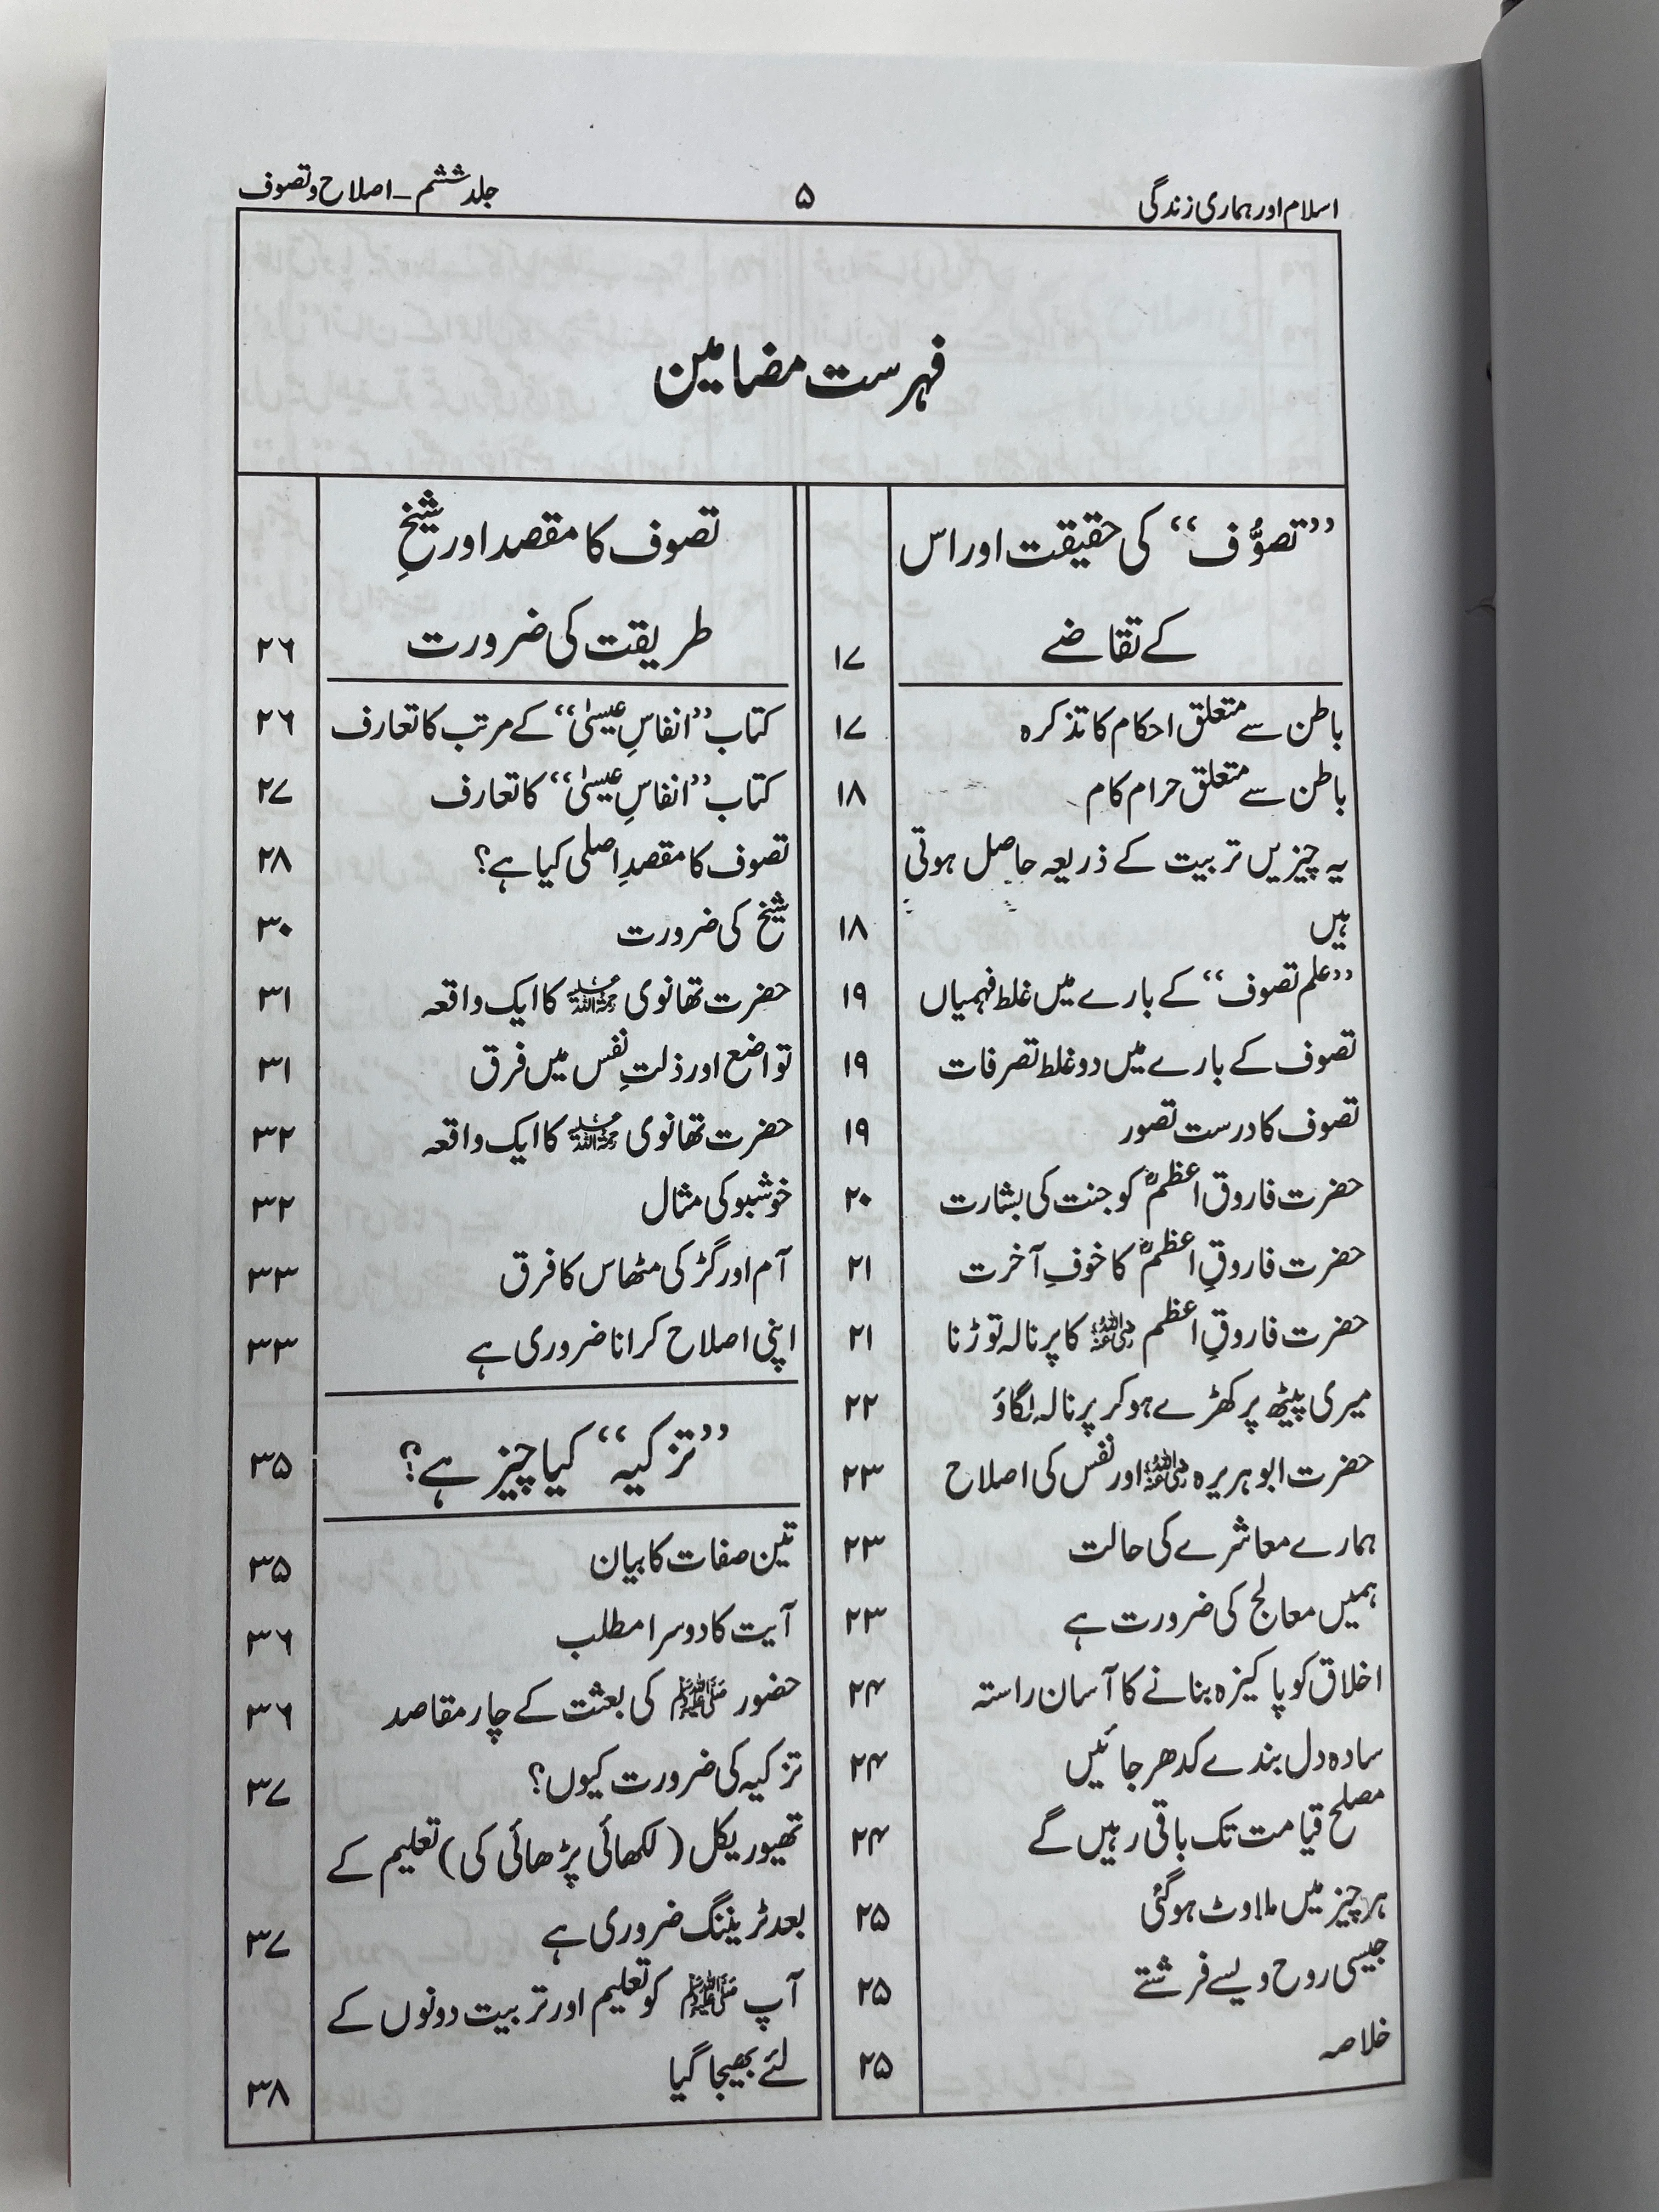 اسلام اور ہماری زندگی ۵ جلد ششم ـ اصلاح و تصوف
فہرست مضامین
’’تصوُّف‘‘ کی حقیقت اور اس
کے تقاضے ۱۷
باطن سے متعلق احکام کا تذکرہ ۱۷
باطن سے متعلق حرام کام ۱۸
یہ چیزیں تربیت کے ذریعہ حاصل ہوتی
ہیں ۱۸
’’علم تصوف‘‘ کے بارے میں غلط فہمیاں ۱۹
تصوف کے بارے میں دو غلط تصرفات ۱۹
تصوف کا درست تصور ۱۹
حضرت فاروق اعظمؓ کو جنت کی بشارت ۲۰
حضرت فاروقِ اعظمؓ کا خوفِ آخرت ۲۱
حضرت فاروقِ اعظم رضی اللہ عنہ کا پرنالہ توڑنا ۲۱
میری پیٹھ پر کھڑے ہو کر پرنالہ لگاؤ ۲۲
حضرت ابو ہریرہ رضی اللہ عنہ اور نفس کی اصلاح ۲۳
ہمارے معاشرے کی حالت ۲۳
ہمیں معالج کی ضرورت ہے ۲۳
اخلاق کو پاکیزہ بنانے کا آسان راستہ ۲۴
سادہ دل بندے کدھر جائیں ۲۴
مصلح قیامت تک باقی رہیں گے ۲۴
ہر چیز میں ملاوٹ ہو گئی ۲۵
جیسی روح ویسے فرشتے ۲۵
خلاصہ ۲۵
تصوف کا مقصد اور شیخِ
طریقت کی ضرورت ۲۶
کتاب ’’انفاسِ عیسیٰ‘‘ کے مرتب کا تعارف ۲۶
کتاب ’’انفاسِ عیسیٰ‘‘ کا تعارف ۲۷
تصوف کا مقصدِ اصلی کیا ہے؟ ۲۸
شیخ کی ضرورت ۳۰
حضرت تھانوی رحمۃ اللہ علیہ کا ایک واقعہ ۳۱
تواضع اور ذلتِ نفس میں فرق ۳۱
حضرت تھانوی رحمۃ اللہ علیہ کا ایک واقعہ ۳۲
خوشبو کی مثال ۳۲
آم اور گڑ کی مٹھاس کا فرق ۳۳
اپنی اصلاح کرانا ضروری ہے ۳۳
’’تزکیہ‘‘ کیا چیز ہے؟ ۳۵
تین صفات کا بیان ۳۵
آیت کا دوسرا مطلب ۳۶
حضور ﷺ کی بعثت کے چار مقاصد ۳۶
تزکیہ کی ضرورت کیوں؟ ۳۷
تھیوریکل (لکھائی پڑھائی کی) تعلیم کے
بعد ٹریننگ ضروری ہے ۳۷
آپ ﷺ کو تعلیم اور تربیت دونوں کے
لئے بھیجا گیا ۳۸